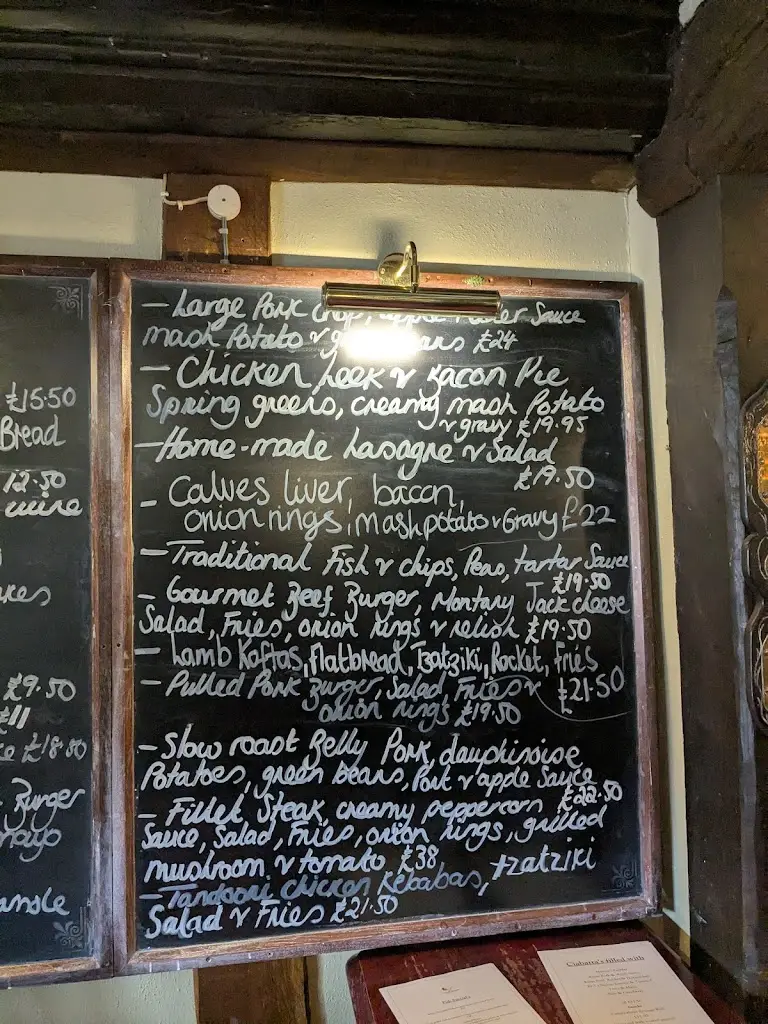 £15.50
Bread
12.50
wine
£9.50
£11
£18.50
Burger
mayo
- Large Pork Chop, apple Sauce
mash Potato & £24
- Chicken Leek & Bacon Pie
Spring greens, creamy mash Potato
& gravy £19.95
- Home-made Lasagne & Salad
£19.50
- Calves liver, bacon,
onion rings, mash potato & Gravy £22
- Traditional Fish & chips, Peas, tartar Sauce
£19.50
- Gourmet Beef Burger, Montary Jack cheese
Salad, Fries, onion rings & relish £19.50
- Lamb Koftas, flatbread, Tzatziki, Rocket, fries
£21.50
- Pulled Pork Burger, Salad, Fries &
onion rings £19.50
- Slow roast Belly Pork, dauphinoise
Potatoes, green beans, Pork & apple Sauce
£22.50
- Fillet Steak, creamy peppercorn
Sauce, Salad, Fries, onion rings, grilled
mushroom & tomato £38
- Tandoori chicken Kebabas, tzatziki
Salad & Fries £21.50
Ciabatta's filled with